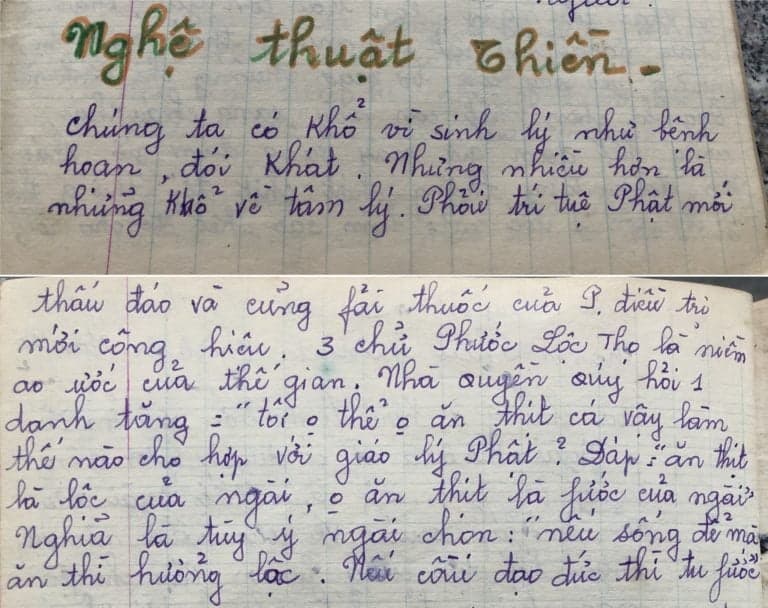 Nghệ thuật Thiền.
chúng ta có Khổ vì sinh lý như bệnh
hoạn, đói Khát. Nhưng nhiều hơn là
những Khổ về tâm lý. Phải trí tuệ Phật mới
thấu đáo và củng fải thuốc của P. điều trị
mới công hiệu. 3 chử Phước Lộc Thọ là niềm
ao ước của thế gian. Nhà quyền quý hỏi 1
danh tăng = "tôi o thể o ăn thịt cá vậy làm
thế nào cho hợp với giáo lý Phật? Đáp: "ăn thịt
là lộc của ngài, o ăn thịt là fước của ngài"
Nghiả là tùy ý ngài chọn: "nếu sống để mà
ăn thì hưởng lộc. Nếu cầu đạo đức thì tu fước"